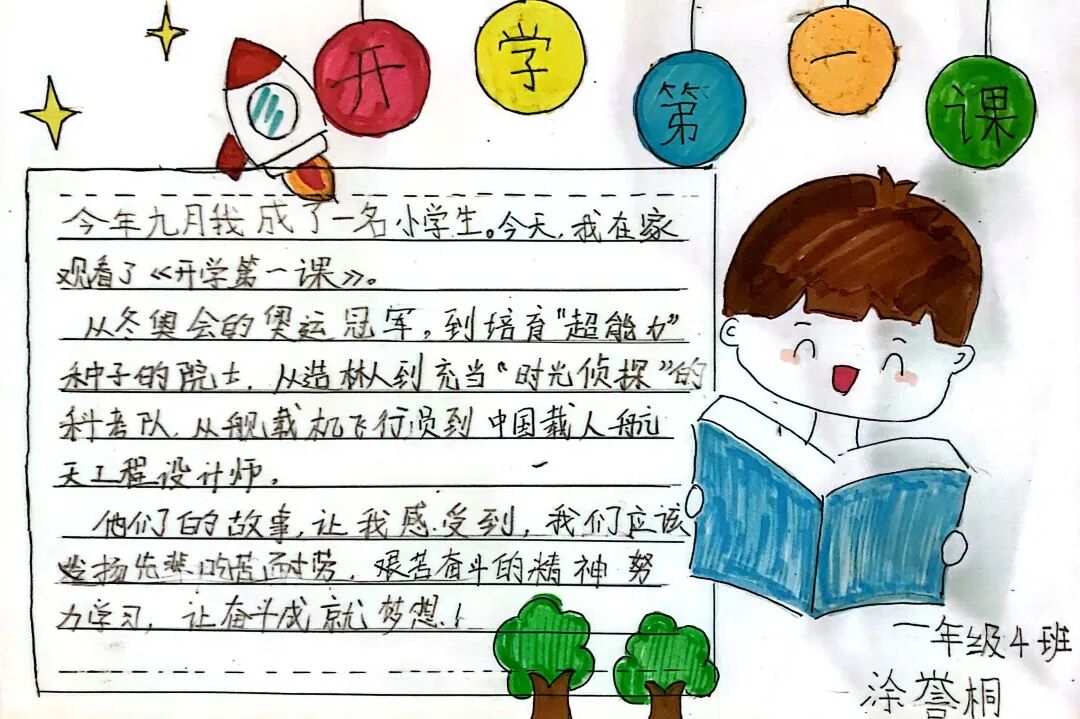 开学第一课
今年九月我成了一名小学生。今天,我在家
观看了《开学第一课》。
从冬奥会的奥运冠军,到培育"超能力"
种子的院士,从造林人到充当"时光侦探"的
科考队,从舰载机飞行员到中国载人航
天工程设计师。
他们的故事,让我感受到,我们应该
发扬先辈吃苦耐劳,艰苦奋斗的精神努
力学习,让奋斗成就梦想!
一年级4班
涂誉桐